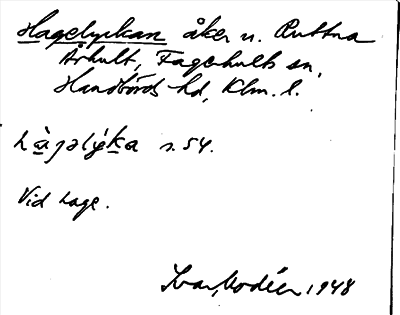 Hagelyckan åker u. Ruttna
Århult, Fagerhults sn,
Handbörds hd, Klm. l.
hàgəlyka s. 54.
Vid hage.
Ivar Modéer 1948